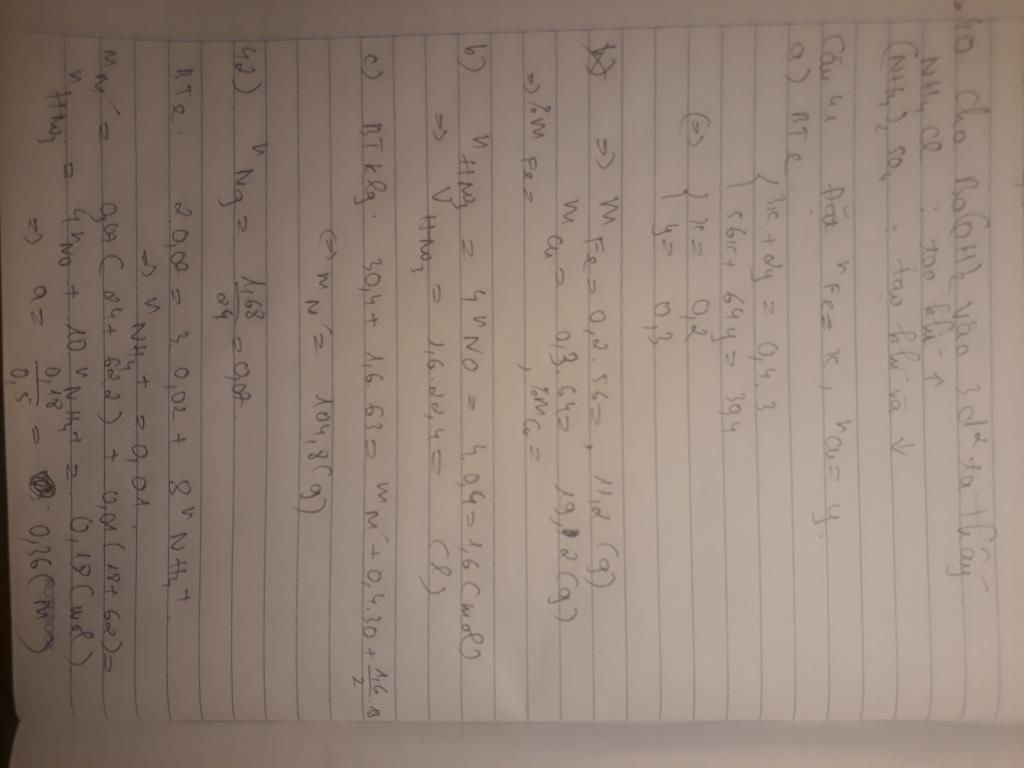 Cho Ba(OH)2 vào 3 d² ta thấy
NH4Cl : tạo khí ↑
(NH4)2 SO4 : tạo khí và ↓
Câu 4 Đặt nFe = x, nCu = y.
a) BTe.
{ 3x + 2y = 0,4.3
56x + 64y = 30,4
(=) { x = 0,2
y = 0,3
=) mFe = 0,2.56 = 11,2 (g)
mCu = 0,3.64 = 19,2 (g)
=) %mFe = , %mCu =
b) nHNO3 = 4nNO = 4.0,4 = 1,6 (mol)
=) VHNO3 = 1,6.22,4 = (l)
c) BTklg. 30,4 + 1,6.63 = mM' + 0,4.30 + 1,6/2 .18
(=) mM' = 104,8 (g)
42) nMg = 1,68/24 = 0,07
BTe. 2.0,07 = 3.0,02 + 8nNH4+
=) nNH4+ = 0,01
mM' = 0,07(24+62.2) + 0,01(18+62) =
nHNO3 = 4nNO + 10nNH4+ = 0,18 (mol)
=) a = 0,18/0,5 = 0,36